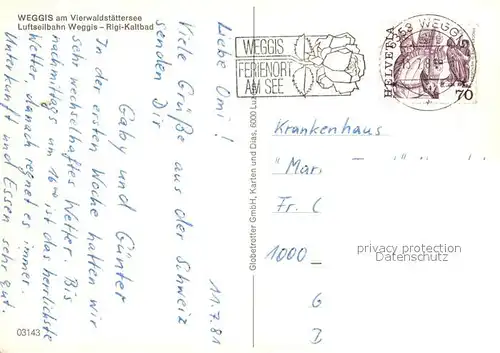 WEGGIS am Vierwaldstättersee
Luftseilbahn Weggis – Rigi-Kaltbad
11.7.81
Liebe Omi!
Viele Grüße aus der Schweiz
senden Dir
Gaby und Günter
In der ersten Woche hatten wir
sehr wechselhaftes Wetter. Bis
nachmittags um 16⁰⁰ ist das herrlichste
Wetter, danach regnet es immer.
Unterkunft und Essen sehr gut.
03143
Globetrotter GmbH, Karten und Dias, 6000 Lu
WEGGIS
FERIENORT
AM SEE
6353 WEGGIS
HELVETIA
70
Krankenhaus
"Mar
Fr. C
1000
G
D
privacy protection
Datenschutz